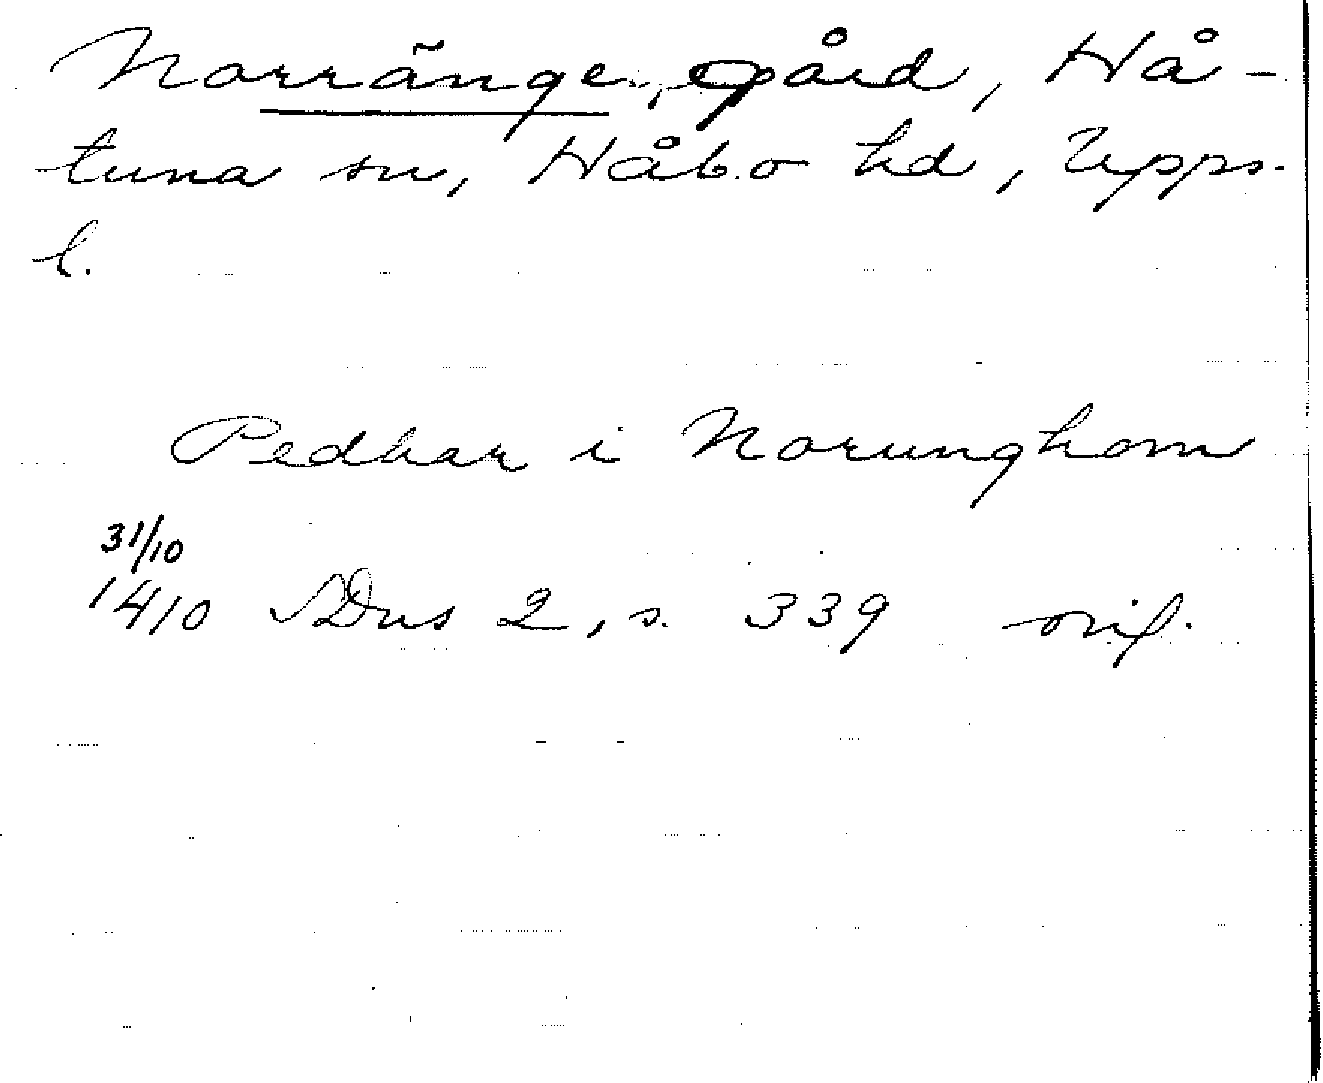 Norränge, gård, Hå-
tuna sn, Håbo hd, Upps.
l.
Pedhar i Norunghom
31/10
1410 SDns 2, s. 339 orig.